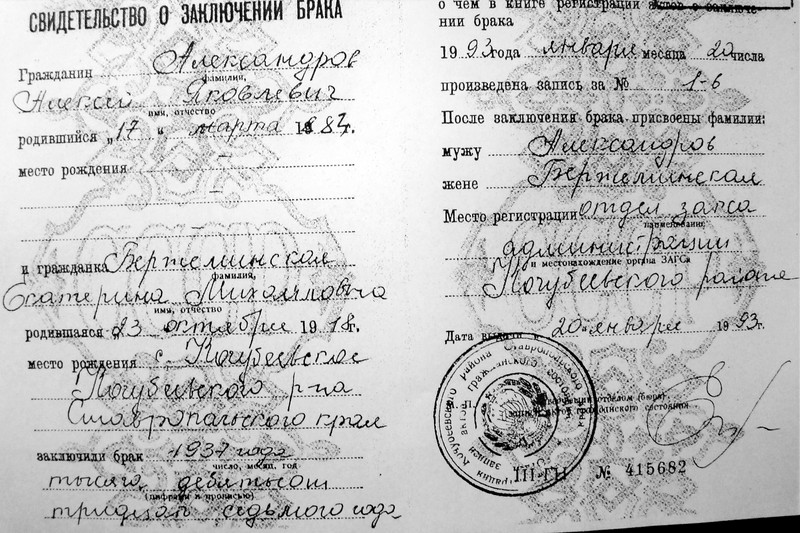 СВИДЕТЕЛЬСТВО О ЗАКЛЮЧЕНИИ БРАКА
Гражданин Александров
фамилия,
Алексей Яковлевич
имя, отчество
родившийся „17 " марта 1887г.
место рождения –
–
–
и гражданка Бертелминская
фамилия,
Екатерина Михайловна
имя, отчество
родившаяся 23 октября 1918г.
место рождения с. Кочубеевское
Кочубеевского р-на
Ставропольского края
заключили брак 1937 года
число, месяц, год
тысяча девятьсот
(цифрами и прописью)
тридцать седьмого года
о чем в книге регистрации актов о заключе-
нии брака
1993года января месяца 20 числа
произведена запись за № 1-б
После заключения брака присвоены фамилии:
мужу Александров
жене Бертелминская
Место регистрации отдел загса
наименование
администрации
и местонахождение органа ЗАГСа
Кочубеевского района
Дата выдачи 20 января 1993г.
отделом (бюро)
записи актов гражданского состояния
III-ГН № 415682